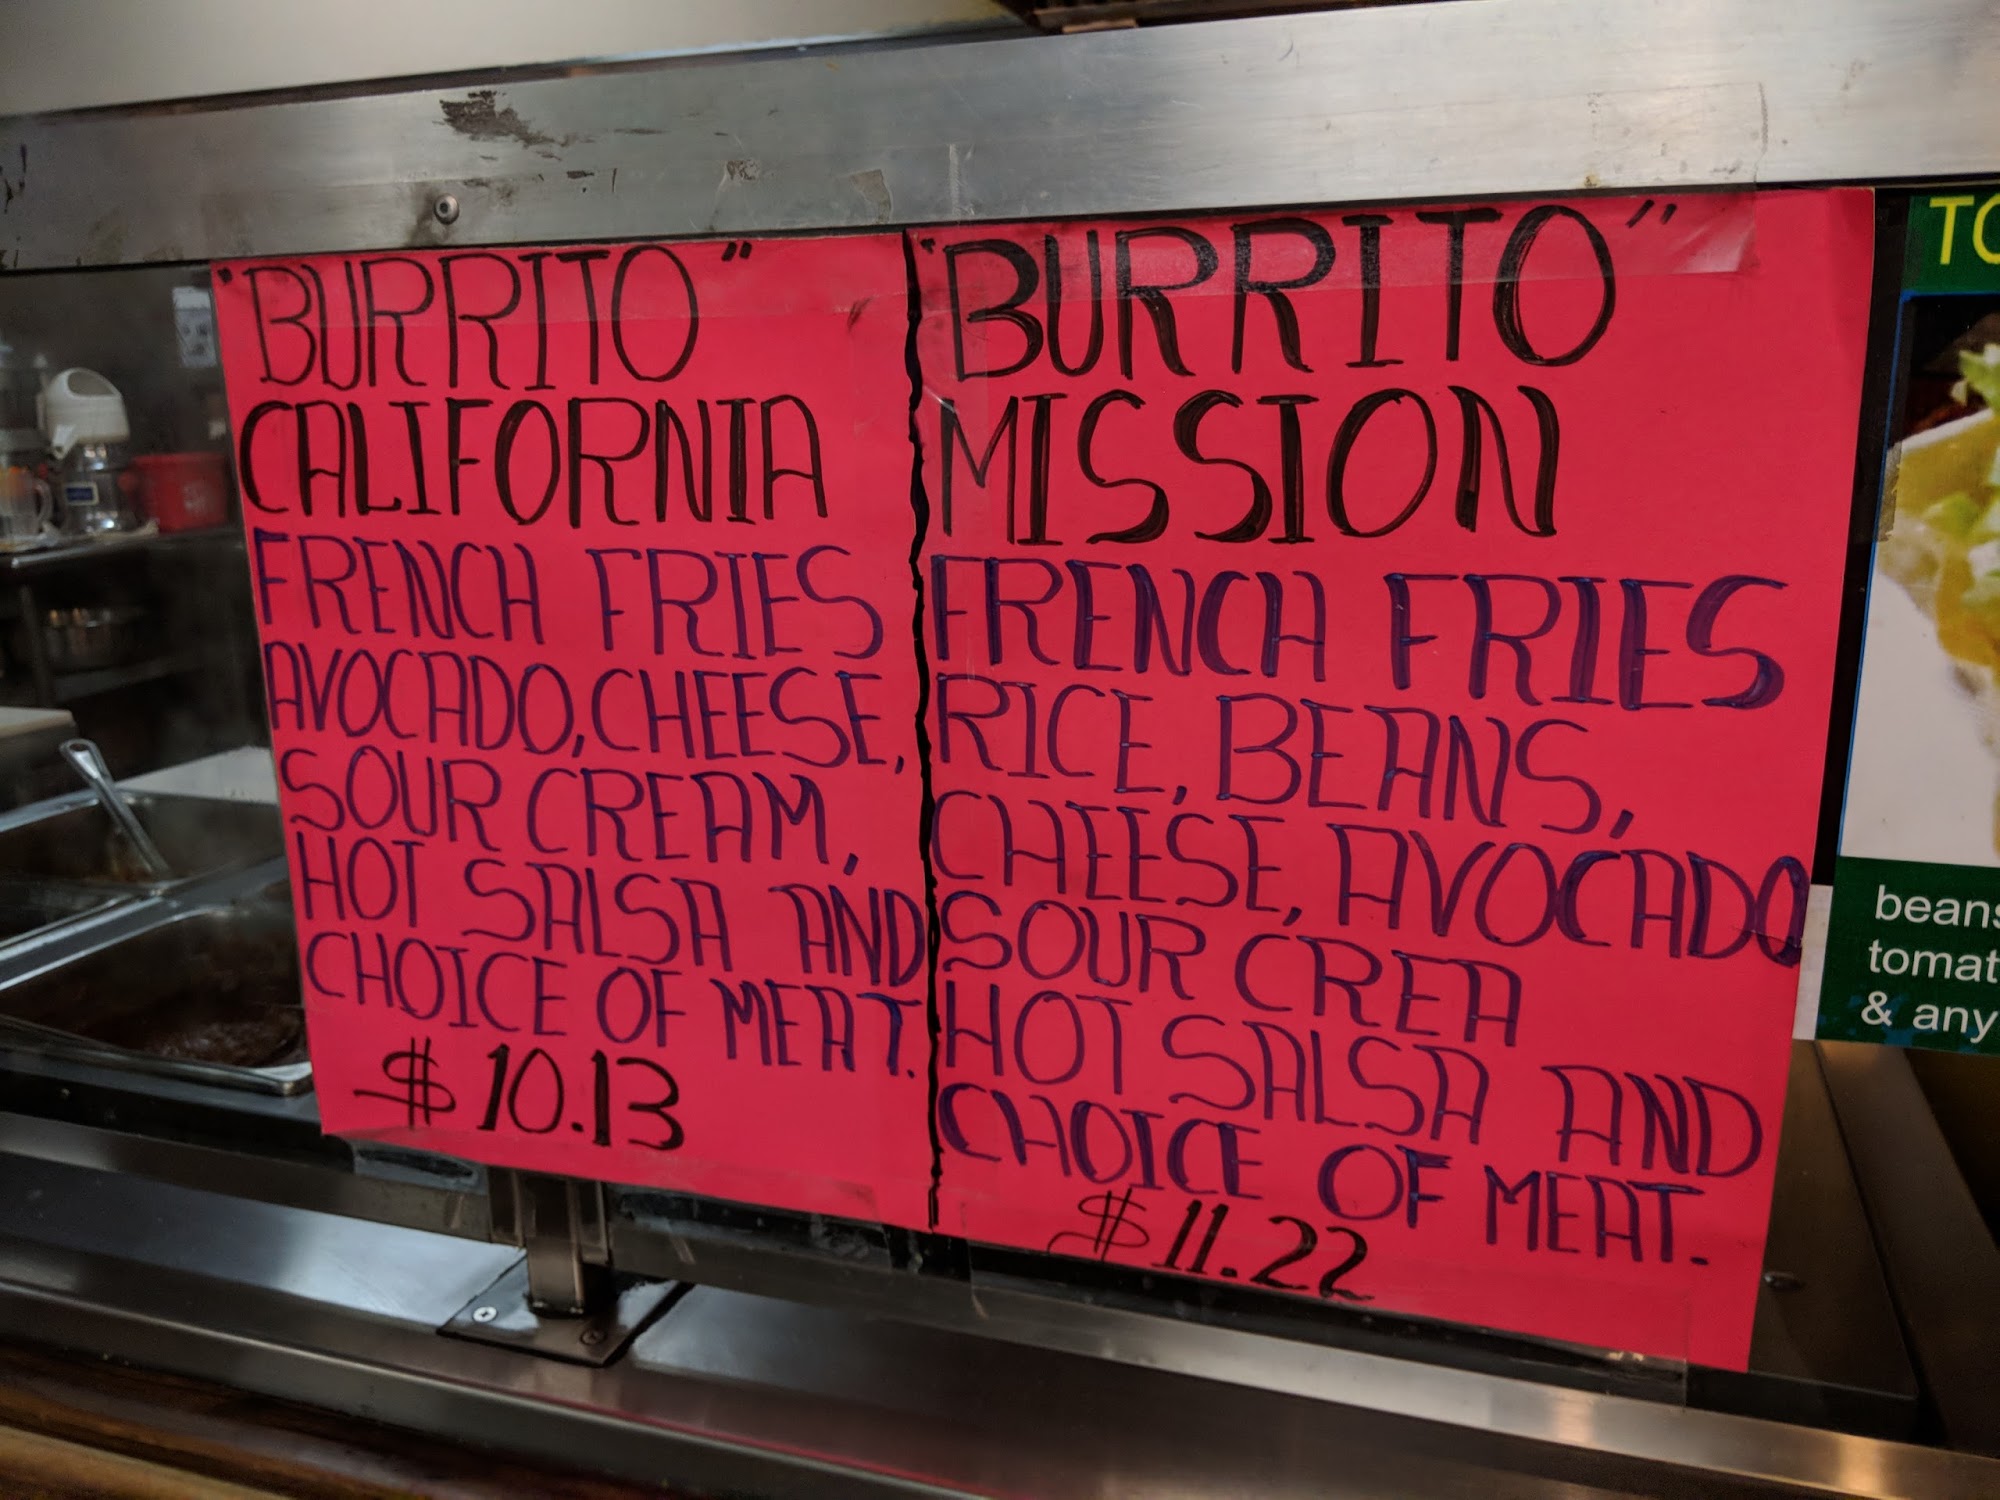 "BURRITO"
CALIFORNIA
FRENCH FRIES
AVOCADO, CHEESE,
SOUR CREAM,
HOT SALSA AND
CHOICE OF MEAT.
$10.13
"BURRITO"
MISSION
FRENCH FRIES
RICE, BEANS,
CHEESE, AVOCADO
SOUR CREA
HOT SALSA AND
CHOICE OF MEAT.
$11.22
TO
beans
tomat
& any